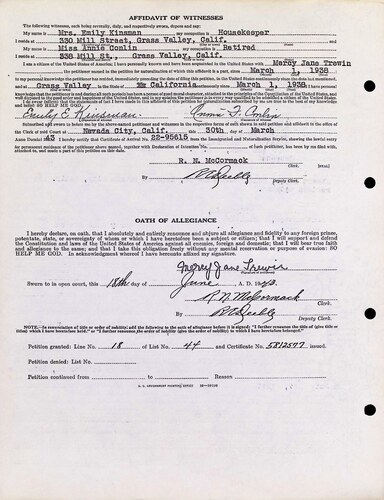 AFFIDAVIT OF WITNESSES
The following witnesses, each being severally, duly, and respectively sworn, depose and say:
My name is Mrs. Emily Kinsman, my occupation is Housekeeper
I reside at 330 Mill Street, Grass Valley, Calif.
My name is Miss Annie Conlin, my occupation is Retired
I reside at 338 Mill St., Grass Valley, Calif.
I am a citizen of the United States of America; I have personally known and have been acquainted in the United States with Mercy Jane Trewin
, the petitioner named in the petition for naturalization of which this affidavit is a part, since March 1, 1938
to my personal knowledge the petitioner has resided, immediately preceding the date of filing this petition, in the United States continuously since the date last mentioned, and
at Grass Valley, in the State of California continuously since March 1, 1938
Emily E. Kinsman. Anna F. Conlin
Subscribed and sworn to before me by the above-named petitioner and witnesses in the respective forms of oath shown in said petition and affidavit in the office of the
Clerk of said Court at Nevada City, Calif. this 30th day of March
Anno Domini 1943 I hereby certify that Certificate of Arrival No. 22-95615 from the Immigration and Naturalization Service, showing the lawful entry for
permanent residence of the petitioner above named, together with Declaration of Intention No. of such petitioner, has been by me filed with,
attached to, and made a part of this petition on this date.
R. N. McCormack
Clerk.
By
Deputy Clerk.
OATH OF ALLEGIANCE
I hereby declare, on oath, that I absolutely and entirely renounce and abjure all allegiance and fidelity to any foreign prince,
potentate, state, or sovereignty of whom or which I have heretofore been a subject or citizen; that I will support and defend
the Constitution and laws of the United States of America against all enemies, foreign and domestic; that I will bear true faith
and allegiance to the same; and that I take this obligation freely without any mental reservation or purpose of evasion: SO
HELP ME GOD. In acknowledgment whereof I have hereunto affixed my signature.
Mercy Jane Trewin
Sworn to in open court, this 18th day of June, A. D. 1943.
R. N. McCormack
Clerk.
By
Deputy Clerk.
NOTE.—In renunciation of title or order of nobility) add the following to the oath of allegiance before it is signed: "I further renounce the title of (give title or
titles) which I have heretofore held," or "I further renounce the order of nobility (give the order of nobility) to which I have heretofore belonged."
Petition granted: Line No. 18 of List No. 44 and Certificate No. 5812577 issued.
Petition denied: List No.
Petition continued from to Reason
U. S. GOVERNMENT PRINTING OFFICE